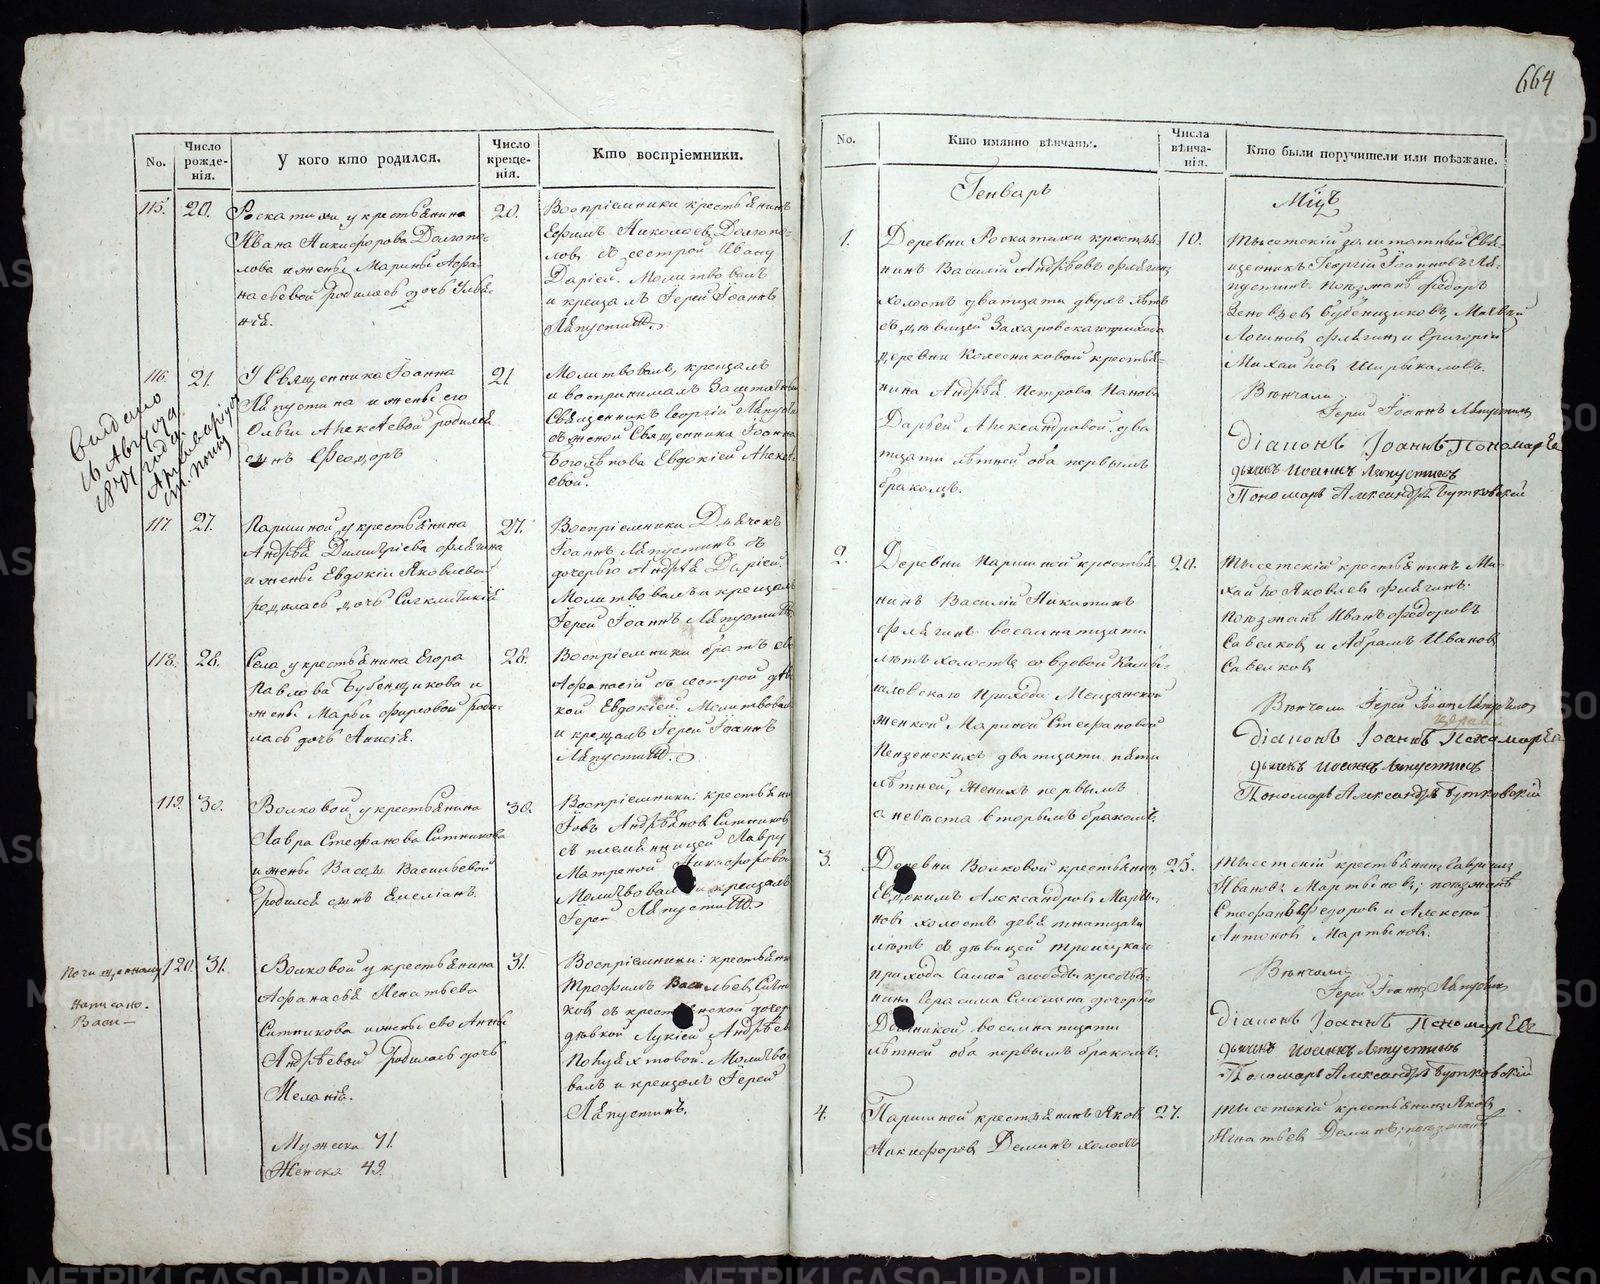 664
No.
Число рожде-нія.
У кого кто родился.
Число креще-нія.
Кто воспріемники.
115.
20.
Роскатихи у крестьянина
Ивана Никифорова Долгопо-
лова и жены Марины Афа-
насьевой родилась дочь Ульа-
нія.
20.
Воспріемники крестьянинъ
Ефимъ Николаевъ Долгопо-
ловъ съ сестрой Ивану
Даріей. Молитвовалъ
и крещалъ Іерей Іоаннъ
Ляпустинъ.
116.
21.
У Священника Іоанна
Ляпустина и жены его
Ольги Алексѣевой родился
сынъ Феодоръ
21.
Молитвовалъ, крещалъ
и воспринималъ Заштатный
Священникъ Георгій Ляпусти
съ женой Священника Іоанна
Боголѣпова Евдокіей Алексѣ-
евой.
Выдано
16 Августа
года
117.
27.
Паришной у крестьянина
Андрѣя Димитріева Флягина
и жены Евдокіи Яковлевой
родилась дочь Сигклитикія
27.
Воспріемники Дьячекъ
Іоаннъ Ляпустинъ съ
дочерью Андрѣя Даріей.
Молитвовалъ и крещалъ
Іерей Іоаннъ Ляпустинъ
118.
28.
Села у крестьянина Егора
Павлова Бубенщикова и
жены Марьи Фирсовой роди-
лась дочь Анисія.
28.
Воспріемники братъ ево
Афанасій съ сестрой дѣв
кой Евдокіей. Молитвовалъ
и крещалъ Іерей Іоаннъ
Ляпустинъ.
119.
30.
Волковой у крестьянина
Лавра Стефанова Ситникова
и жены Вассы Васильевой
Родился сынъ Емеліанъ.
30.
Воспріемники: крестьянинъ
Іовъ Андрѣяновъ Ситниковъ
съ племянницей Лавру
Матреной Никифоровой
Молитвовалъ и крещалъ
Іерей Ляпустинъ.
написано.
120.
31.
Волковой у крестьянина
Афанасья Игнатьева
Ситникова и жены ево Анны
Андрѣевой родилась дочь
Меланія.
31.
Воспріемники: крестьянинъ
Трофимъ Васильевъ Ситни
ковъ съ крестьянской дочерью
дѣвкой Лукіей Андрѣевой
Молитво-
валъ и крещалъ Іерей
Ляпустинъ.
Мужска 71.
Женска 49.
No.
Кто имянно вѣнчаны.
Числа вѣнча-нія.
Кто были поручители или поѣзжане.
Генварь
Мцъ
1.
Деревни Роскатихи крестья-
нинъ Василій Андрѣевъ Флягинъ
холостъ дватцати двухъ лѣтъ
съ дѣвицей Захаровскаго прихода
деревни Колесниковой крестья-
нина Андрѣя Петрова Панова
Дарьей Александровой два
тцати лѣтней оба первымъ
бракомъ.
10.
Тысетскій заштатный Свя-
щенникъ Георгій Іоанновъ Ля-
пустинъ. Поѣзжанѣ Федоръ
Зеновьевъ Бубенщиковъ, Матвей
Логиновъ Флягинъ и Григорій
Михайловъ Ширыкаловъ.
Вѣнчали
Іерей Іоаннъ Ляпустинъ
Діаконъ Іоаннъ Пономаревъ
дьячекъ Иоаннъ Ляпустинъ
Пономарь Александръ Бутковскій
2.
Деревни Паришной крестья-
нинъ Василій Никитинъ
Флягинъ восемнатцати
лѣтъ холостъ со вдовой Камы-
шловскаго прихода Мещанской
женкой Мариной Стефановой
Пензенскихъ дватцати пяти
лѣтней, женихъ первымъ
а невѣста вторымъ бракомъ.
20.
Тысетскій крестьянинъ Ми-
хайло Яковлевъ Флягинъ.
Поѣзжанѣ Иванъ Федоровъ
Савелковъ и Абрамъ Ивановъ
Савелковъ
Вѣнчали Іерей Іоаннъ Ляпустинъ
Діаконъ Іоаннъ Пономаревъ
дьячекъ Иоаннъ Ляпустинъ
Пономарь Александръ Бутковскій
3.
Деревни Волковой крестьянинъ
Евдокимъ Александровъ Марты-
новъ холостъ девятнатцати
лѣтъ съ дѣвицей Троицкаго
прихода Самой слободы крестья-
нина Герасима дочерью
Домникой восемнатцати
лѣтней оба первымъ бракомъ.
25.
Тысетскій крестьянинъ Гавріилъ
Ивановъ Мартыновъ; поѣзжанѣ
Стефанъ Федоровъ и Алексѣй
Антоновъ Мартыновъ.
Вѣнчали
Іерей Іоаннъ Ляпустинъ
Діаконъ Іоаннъ Пономаревъ
дьячекъ Иоаннъ Ляпустинъ
Пономарь Александръ Бутковскій
4.
Паришной крестьянинъ Яковъ
Никифоровъ Деминъ холостъ
27.
Тысетскій крестьянинъ Яковъ
Игнатьевъ Деминъ; поѣзжанѣ
METRIKI.GASO-URAL.RU